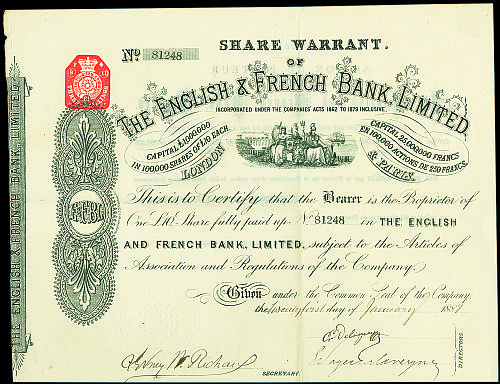 SHARE WARRANT.
Nº 81248
OF
THE ENGLISH & FRENCH BANK, LIMITED.
INCORPORATED UNDER THE COMPANIES' ACTS 1862 TO 1879 INCLUSIVE.
CAPITAL £1,000,000
IN 100,000 SHARES OF £10 EACH.
LONDON
CAPITAL 25,000,000 FRANCS
EN 100,000 ACTIONS DE 250 FRANCS
& PARIS.
This is to Certify that the Bearer is the Proprietor of
One £10 Share fully paid up Nº 81248 in THE ENGLISH
AND FRENCH BANK, LIMITED, subject to the Articles of
Association and Regulations of the Company.
Given under the Common Seal of the Company,
the twenty first day of January 1881
DIRECTORS.
SECRETARY.
THE ENGLISH & FRENCH BANK, LIMITED.